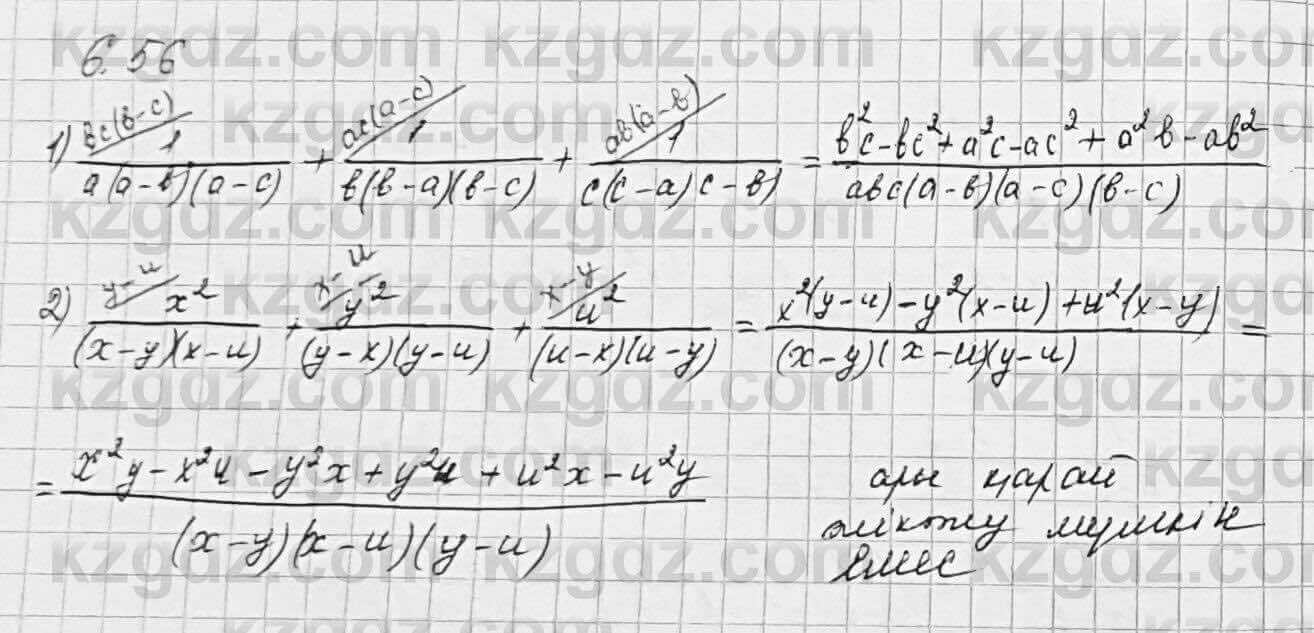 6.56
1) bc(b-c)/ 1/(a(a-b)(a-c)) + ac(a-c)/ 1/(b(b-a)(b-c)) + ab(a-b)/ 1/(c(c-a)c-b)) = (b²c-bc²+a²c-ac²+a²b-ab²)/(abc(a-b)(a-c)(b-c))
2) y-u/ x²/((x-y)(x-u)) + x-u/ y²/((y-x)(y-u)) + x-y/ u²/((u-x)(u-y)) = (x²(y-u)-y²(x-u)+u²(x-y))/((x-y)(x-u)(y-u)) =
= (x²y-x²u-y²x+y²u+u²x-u²y)/((x-y)(x-u)(y-u))
ары қарай
жіктеу мүмкін
емес
kzgdz.com kzgdz.com kzgdz.com
kzgdz.com kzgdz.com kzgdz.com
kzgdz.com kzgdz.com kzgdz.com
kzgdz.com kzgdz.com kzgdz.com